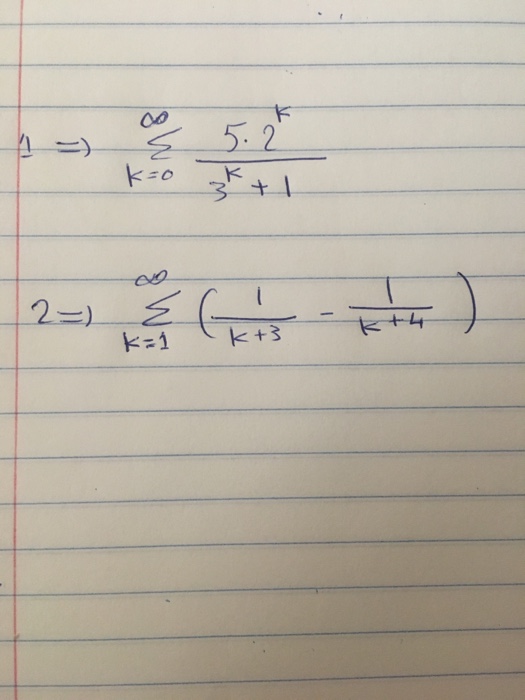 1 => ∞ Σ k=0 5·2^k / 3^k + 1
2 => ∞ Σ k=1 ( 1 / k+3 - 1 / k+4 )